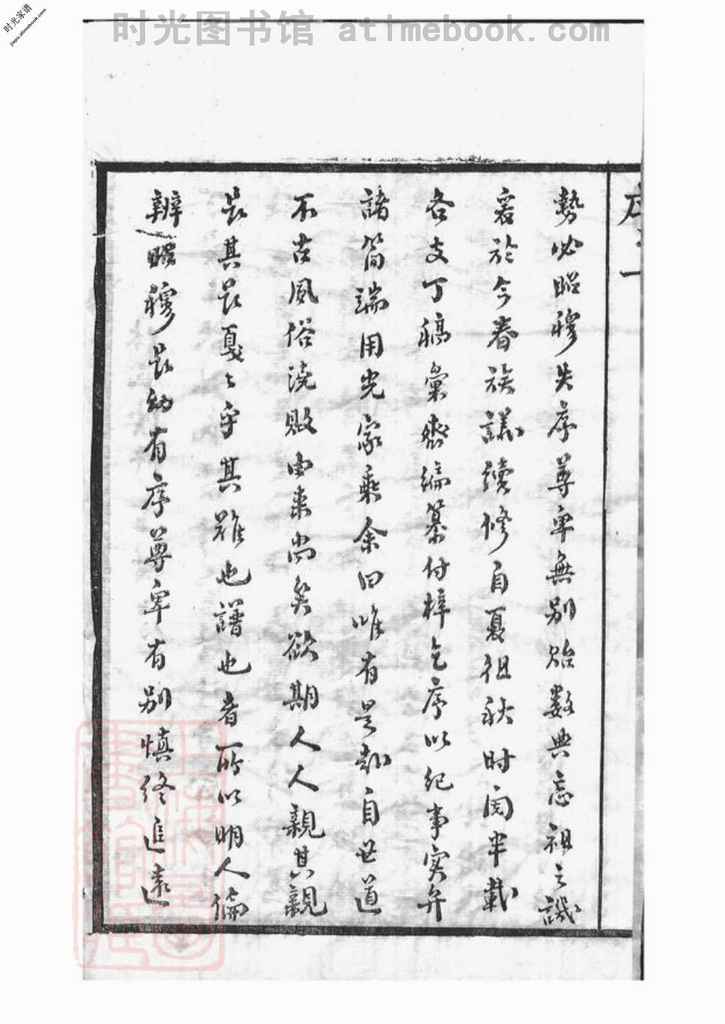 时光图书馆 atimebook.com
时光家谱
勢必昭穆失序尊卑無別貽數典忘祖之譏
爰於今春族議續修自夏徂秋时閱半載
各支丁稿彙齊編纂付梓乞序以纪事实弁
諸简端用光家乘余曰唯有是却自世道
不古風俗浇败由来尚矣欲期人人親其親
長其長戛戛乎其难也譜也者所以明人倫
辨昭穆長幼有序尊卑有别慎终追遠